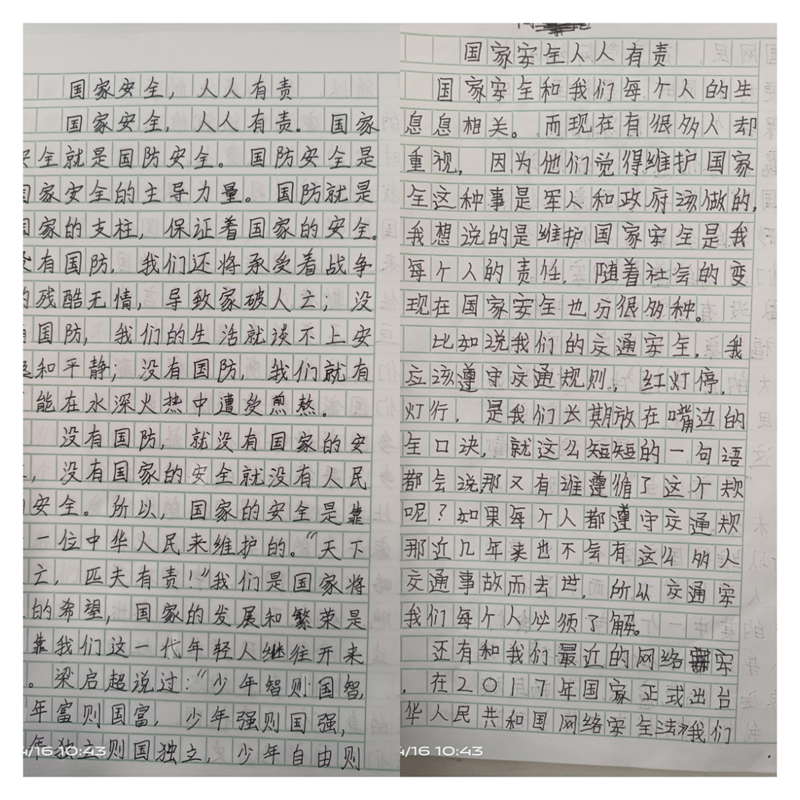 国家安全，人人有责
国家安全，人人有责。国家
安全就是国防安全。国防安全是
国家安全的主导力量。国防就是
国家的支柱，保证着国家的安全。
有国防，我们还将承受着战争
的残酷无情，导致家破人亡；没
有国防，我们的生活就谈不上安
和平静；没有国防，我们就有
能在水深火热中遭受煎熬。
没有国防，就没有国家的安
，没有国家的安全就没有人民
的安全。所以，国家的安全是靠
一位中华人民来维护的。“天下
亡，匹夫有责！”我们是国家将
的希望，国家的发展和繁荣是
靠我们这一代年轻人继往开来
。梁启超说过：“少年智则国智，
年富则国富，少年强则国强，
年独立则国独立，少年自由则
4/16 10:43
国家安全人人有责
国家安全和我们每个人的生
息息相关。而现在有很多人却
重视，因为他们觉得维护国家
全这种事是军人和政府该做的，
我想说的是维护国家安全是我
每个人的责任，随着社会的变
现在国家安全也分很多种。
比如说我们的交通安全，我
应该遵守交通规则，红灯停，
灯行，是我们长期放在嘴边的
全口决，就这么短短的一句语
都会说那又有谁遵循了这个规
呢？如果每个人都遵守交通规
那近几年来也不会有这么多人
交通事故而去世，所以交通安
我们每个人必须了解。
还有和我们最近的网络安
，在2017年国家正式出台
华人民共和国网络安全法》我们
4/16 10:43